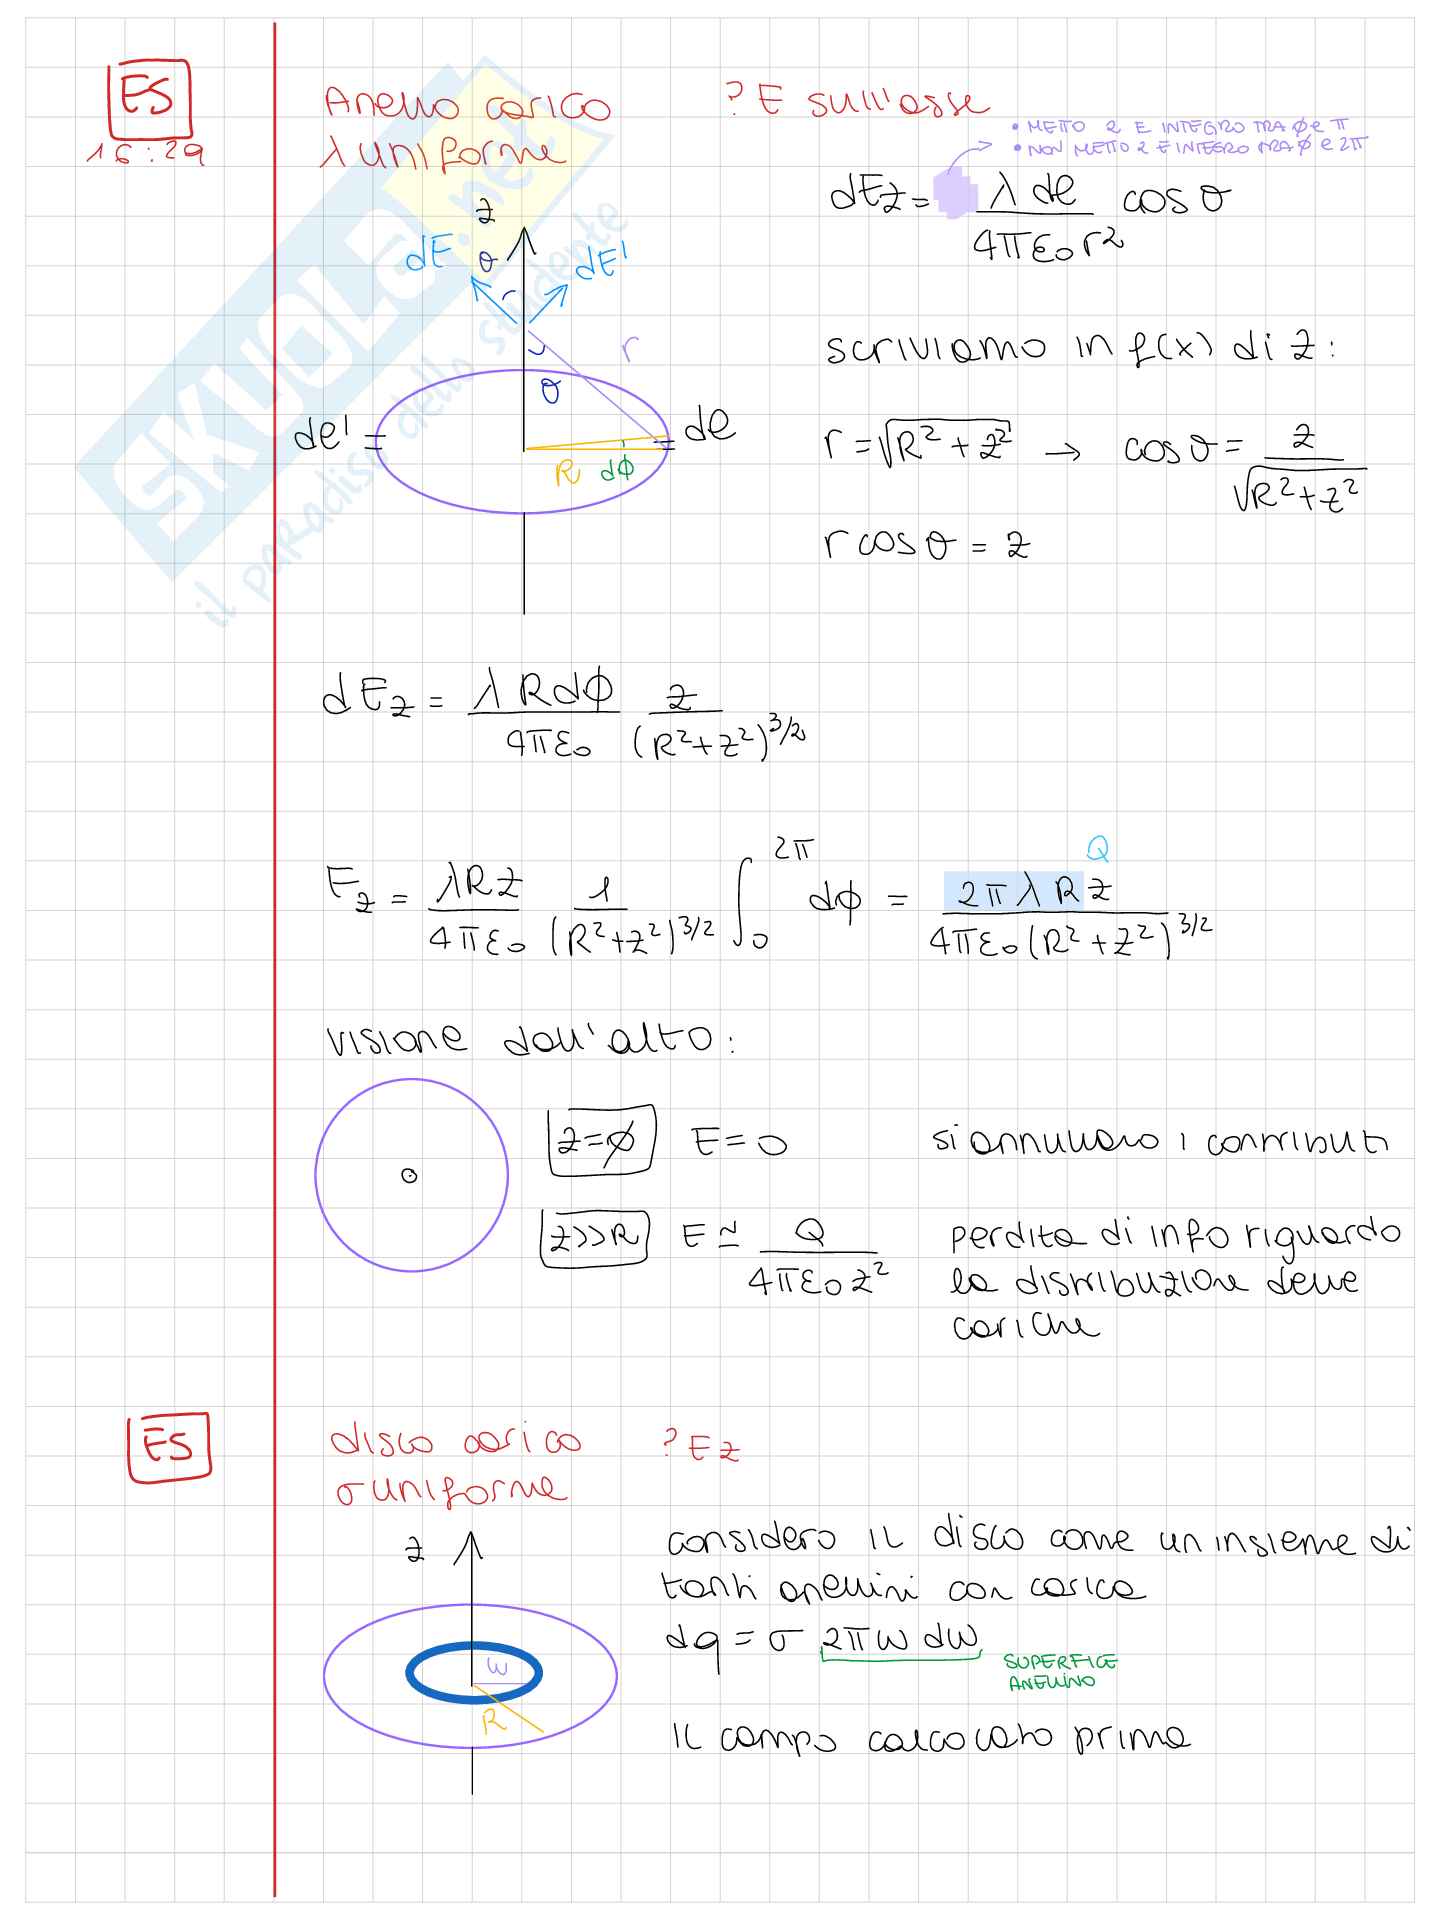 ES
16:29
Anello carico
λ uniforme
? E sull'asse
• METTO 2 E INTEGRO TRA φ e π
• NON METTO 2 E INTEGRO TRA φ e 2π
dEz = λ dl / 4πε₀r² cosθ
z
dE
θ
dE'
r
θ
dl' =
= dl
R
dφ
scriviamo in f(x) di z:
r = √(R² + z²) → cosθ = z / √(R²+z²)
r cosθ = z
dEz = λ R dφ / 4πε₀ z / (R²+z²)^3/2
Ez = λRz / 4πε₀ 1 / (R²+z²)^3/2 ∫₀^2π dφ = 2πλR z / 4πε₀(R²+z²)^3/2
Q
visione dall'alto:
z=φ E=0 si annullano i contributi
z>>R E ≃ Q / 4πε₀z² perdita di info riguardo
la distribuzione delle
cariche
ES
disco carico ? Ez
σ uniforme
z
w
R
considero il disco come un insieme di
tanti anellini con carica
dq = σ 2πw dw
SUPERFICE
ANELLINO
Il campo calcolato prima
SKUOLA.net
il paradiso dello studente